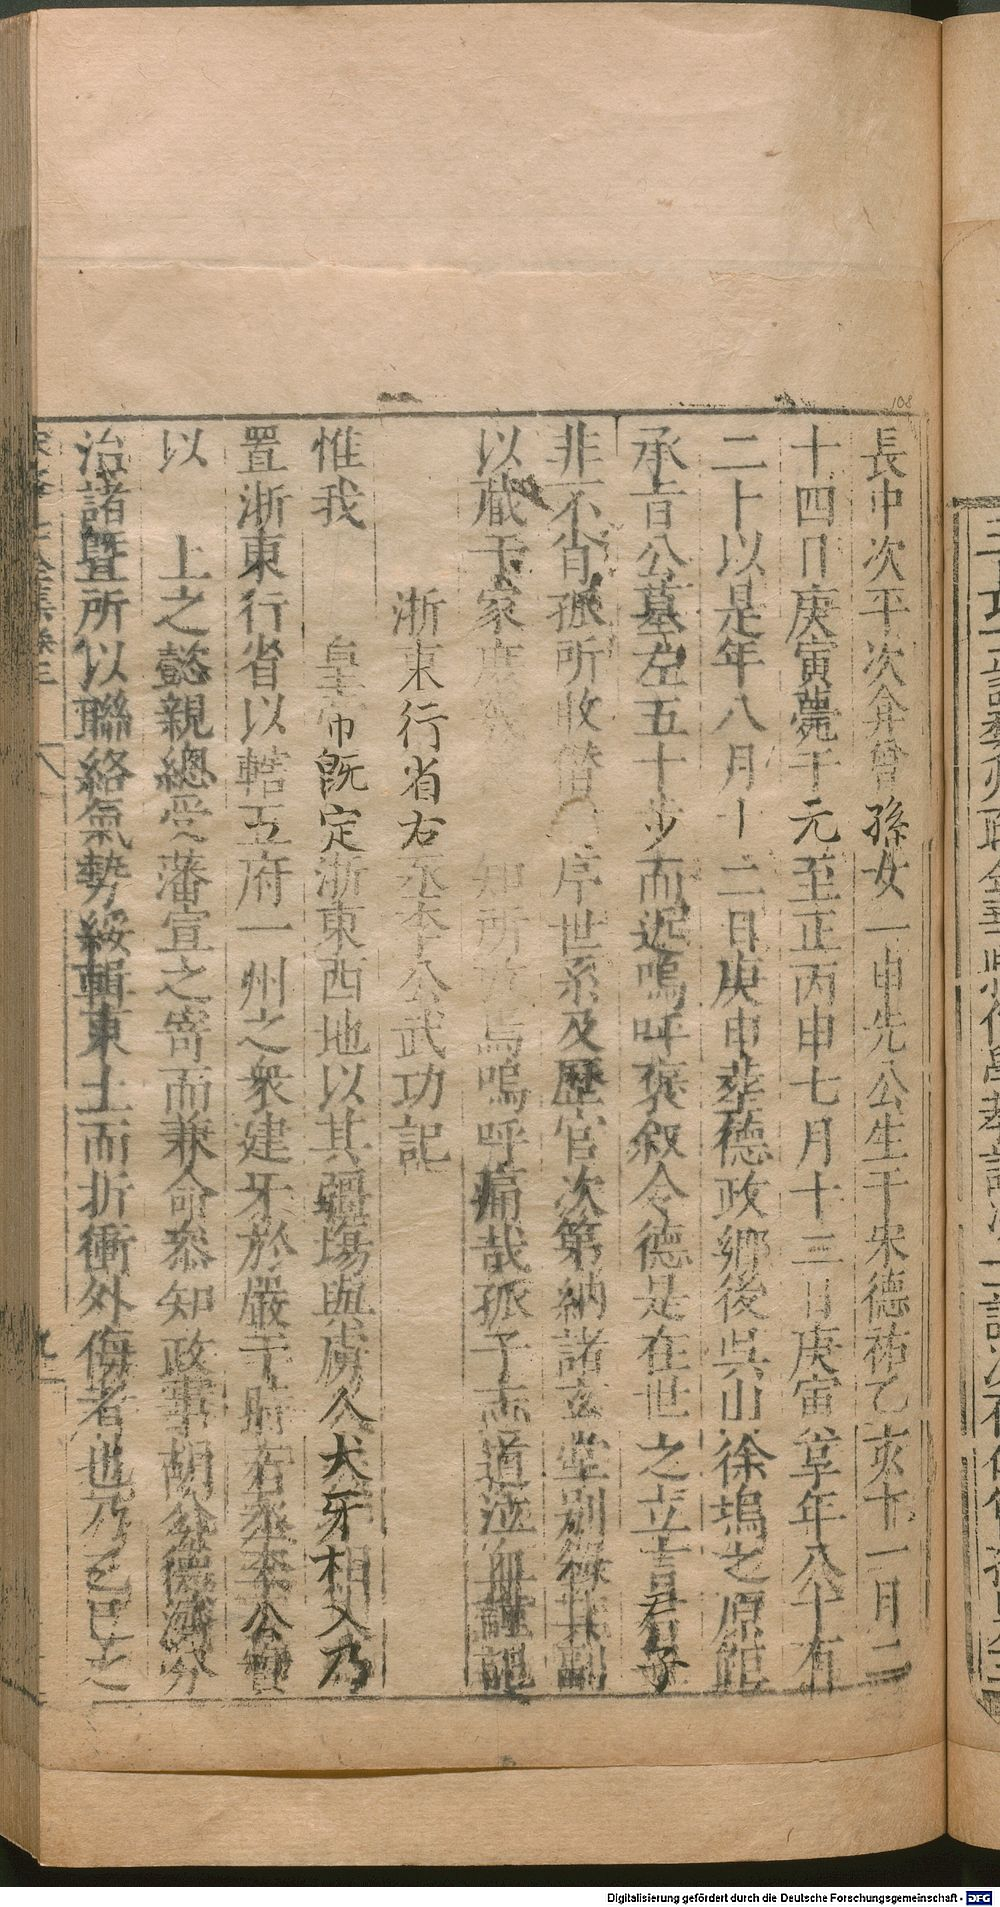 長中次平次介曾孫女一申先公生于宋德祐乙亥十一月二
十四日庚寅薨于元至正丙申七月十三日庚寅享年八十有
二卜以是年八月十二日庚申葬德政鄉後吳山徐塢之原距
承旨公墓左五十步而近嗚呼褒叙令德是在世之立言君子
非不肖孤所收僣序世系及歷官次第納諸玄堂別錄其副
以蔵于家庶幾知所攷焉嗚呼痛哉孤子志道泣血謹記
浙東行省右丞李公武功記
惟我
皇帝既定浙東西地以其疆場與虜人犬牙相入乃
置浙東行省以轄五府一州之衆建牙於嚴于時右丞李公實
以
上之懿親總受藩宣之寄而兼命叅知政事胡公德濟分
治諸暨所以聯絡氣勢綏輯東土而折衝外侮者也乃乙巳之
108
Digitalisierung gefördert durch die Deutsche Forschungsgemeinschaft - DFG